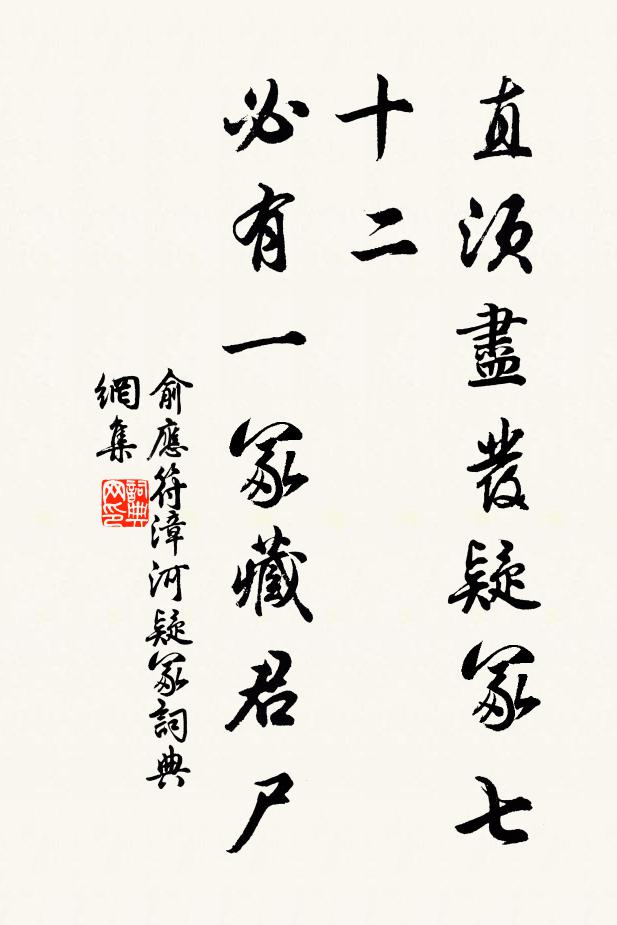 直須盡發疑冢七
十二
必有一冢藏君尸
俞應符漳河疑冢詞典
網集
詞典
网印